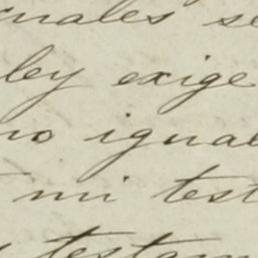 iguales se
ley exige
no igual
mi test
testam